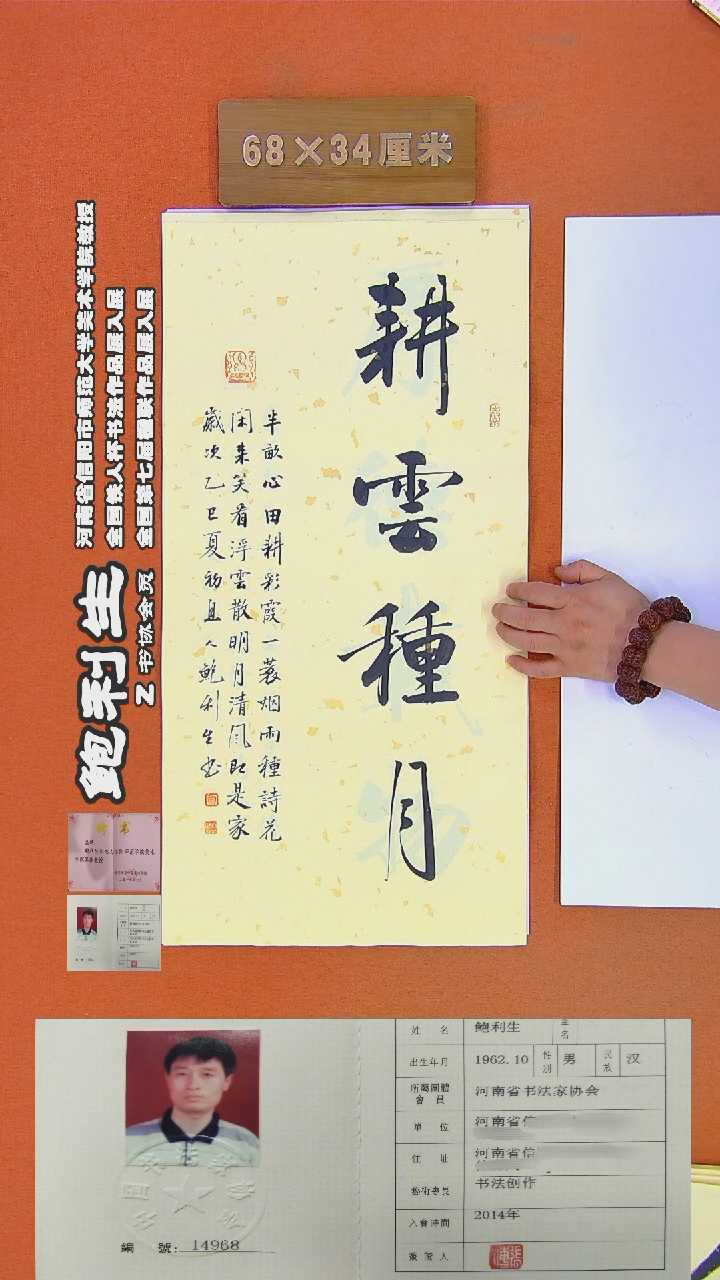 68×34厘米
耕雲種月
半畝心田耕彩霞一蓑烟雨種詩花
闲来笑看浮雲散明月清风即是家
歲次乙巳夏初且人鲍利生书
河南省信阳市师范大学美术学院教授
全国美人杯书法作品展入展
全国第七届楹联作品展入展
鲍利生
Z书协会员
聘书
姓名 鲍利生
出生年月 1962.10 性别 男 民族 汉
所屬團體會員 河南省书法家协会
單位 河南省信
住址 河南省信
藝術專長 书法创作
入會時間 2014年
簽發人
編號: 14968